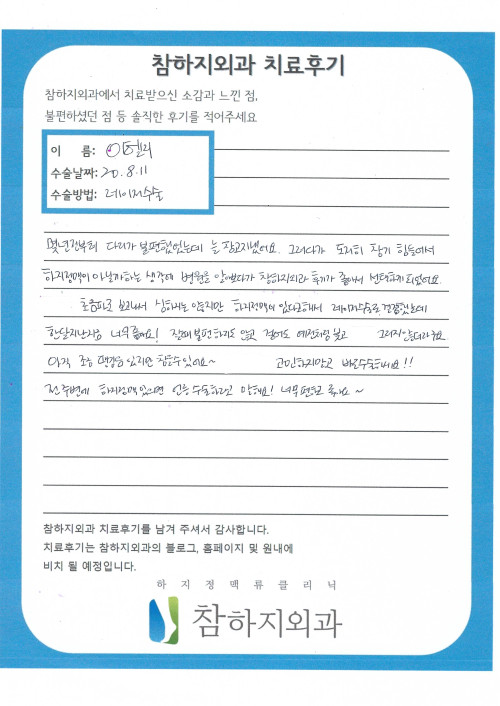 참하지외과 치료후기
참하지외과에서 치료받으신 소감과 느낀 점,
불편하셨던 점 등 솔직한 후기를 적어주세요
이 름:
수술날짜: 20. 8. 11
수술방법: 레이저수술
몇년전부터 다리가 불편했었는데 늘 참고지냈어요. 그러다가 도저히 참기 힘들어서
하지정맥이 아닐까하는 생각에 병원을 알아보다가 참하지외과 후기가 좋아서 선택하게 되었어요.
초음파로 보고나서 심하지는 않지만 하지정맥이 있다고해서 레이저수술로 결정했는데
한달지난지금 너무 좋아요! 잘때 불편하지도 않고 걸어도 예전처럼 붓고 그러지않더라구요
아직 조금 땡김은 있지만 참을수있어요~ 고민하지말고 바로수술하세요!!
전 주변에 하지정맥 있으면 얼른 수술하라고 말해요! 너무편하고 좋아요~
참하지외과 치료후기를 남겨 주셔서 감사합니다.
치료후기는 참하지외과의 블로그, 홈페이지 및 원내에
비치 될 예정입니다.
하지정맥류클리닉
참하지외과